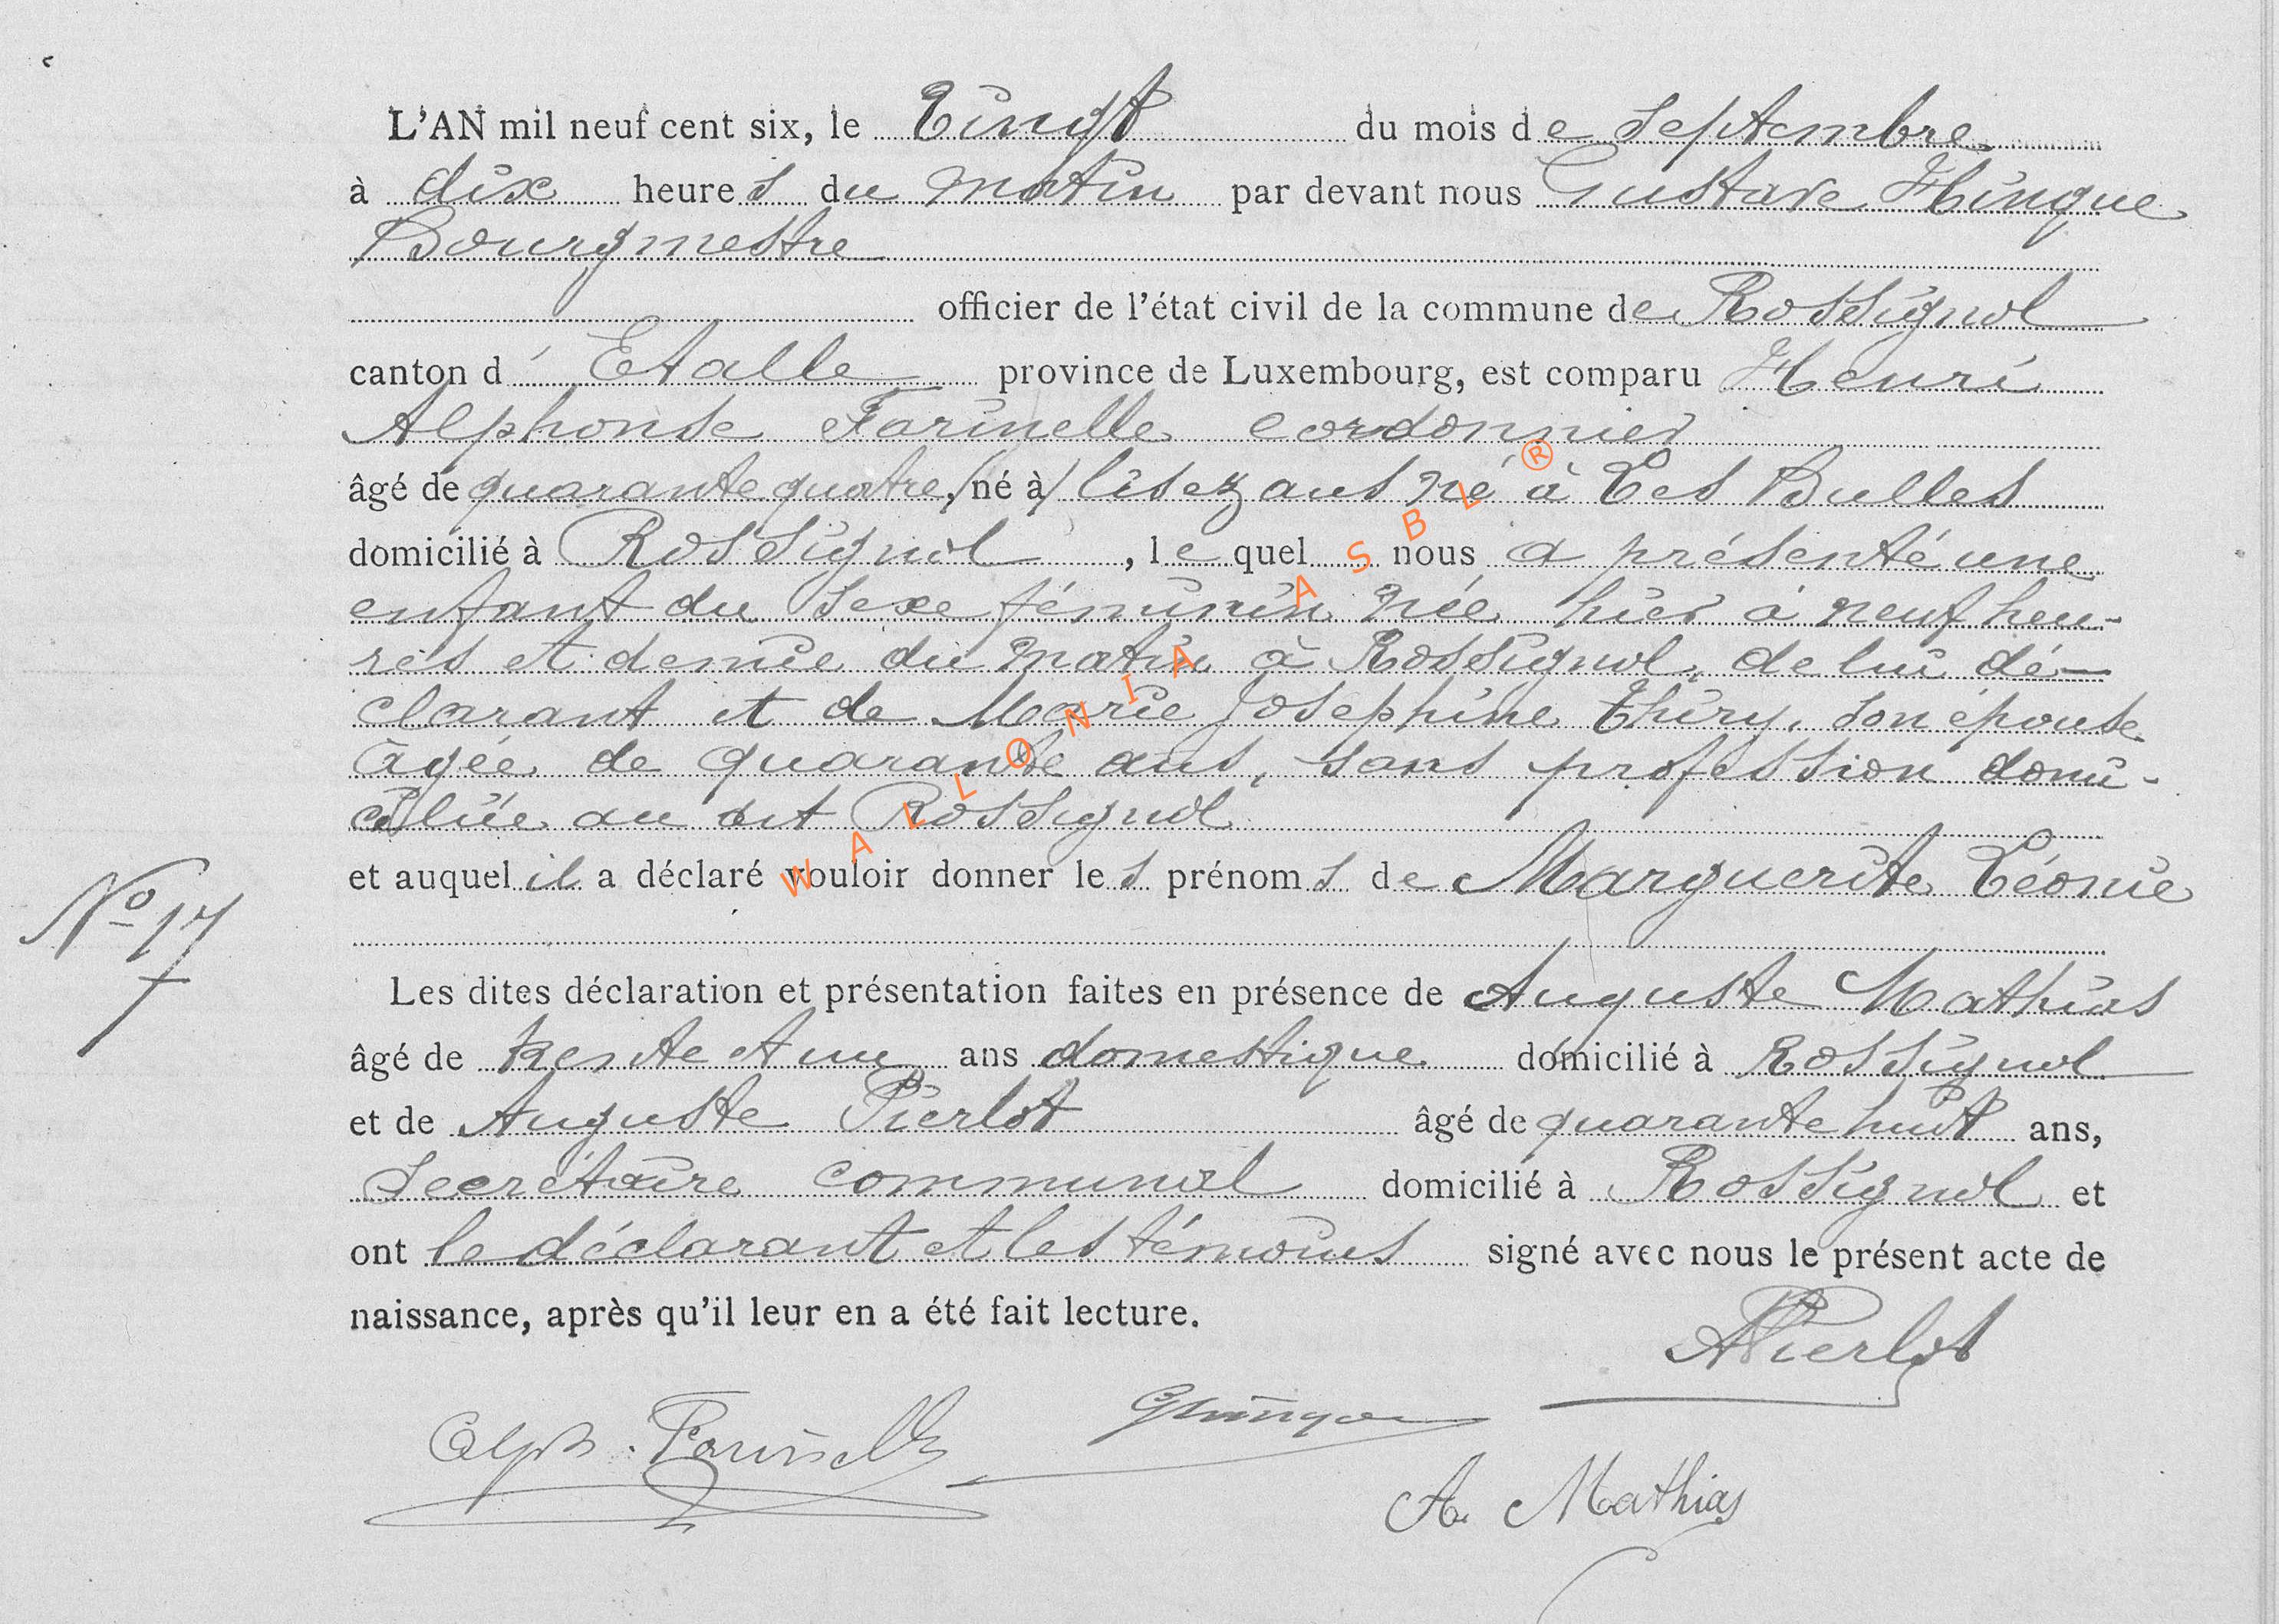 L'AN mil neuf cent six, le Vingt du mois de Septembre
à dix heures du matin par devant nous Gustave Hinque
Bourgmestre
officier de l'état civil de la commune de Rossignol
canton d' Etalle province de Luxembourg, est comparu Henri
Alphonse Farinelle cordonnier
âgé de quarante quatre, (né à) lisez ans né à Les Bulles
domicilié à Rossignol, lequel nous a présenté une
enfant du sexe féminin née hier à neuf heu-
res et demie du matin à Rossignol, de lui dé-
clarant et de Marie Joséphine Thiry, son épouse
âgée de quarante ans, sans profession domi-
ciliée au dit Rossignol
et auquel il a déclaré vouloir donner les prénoms de Marguerite Léonie
No 17
Les dites déclaration et présentation faites en présence de Auguste Mathias
âgé de trente et un ans domestique domicilié à Rossignol
et de Auguste Pierlot âgé de quarante huit ans,
Secrétaire communal domicilié à Rossignol et
ont le déclarant et les témoins signé avec nous le présent acte de
naissance, après qu'il leur en a été fait lecture.
APierlot
Alph. Farinelle GHinque
A. Mathias
WALLONIA ASBL ®